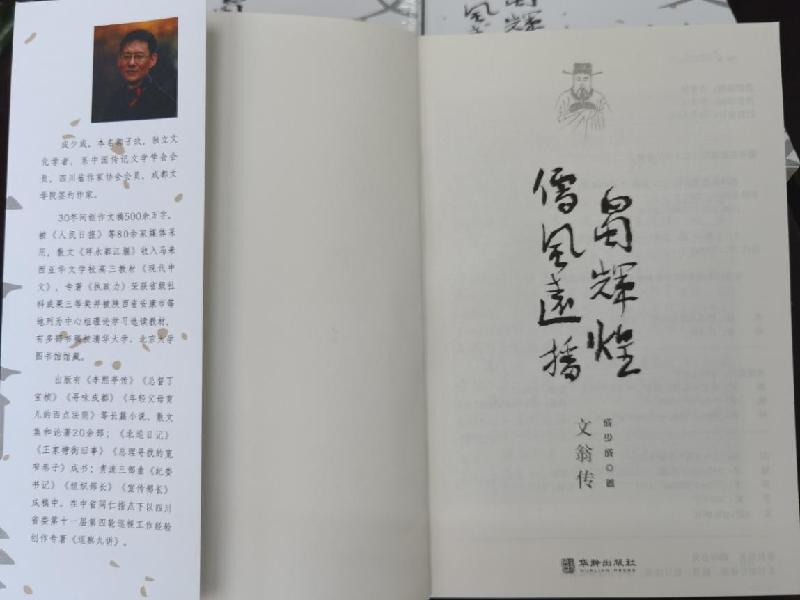 成少成，本名
，独立文
化学者，系中国传记文学学会会
员，四川省作家协会会员、成都文
学院签约作家。
30年间创作文稿500余万字，
被《人民日报》等80余家媒体采
用，散文《拜水都江堰》收入马来
西亚华文学校高三教材《现代中
文》，专著《执政力》荣获省级社
科成果三等奖并被陕西省安康市等
地列为中心组理论学习选读教材，
有多部书稿被清华大学、北京大学
图书馆馆藏。
出版有《李熙亭传》《总督丁
宝桢》《寻味成都》《年轻父母育
儿的四点法则》等长篇小说、散文
集和论著20余部；《北巡日记》
街旧事》《总理哥我的宽
窄巷子》成书；
三部曲《纪委
书记》《组织部长》《宣传部长》
成稿中，在中省同仁指点下以四川
省委第十一届第四轮巡视工作经验
创作专著《巡察九讲》。
蜀輝煌
儒風遠播
成少成◎著
文翁传
华龄出版社
HUALING PRESS